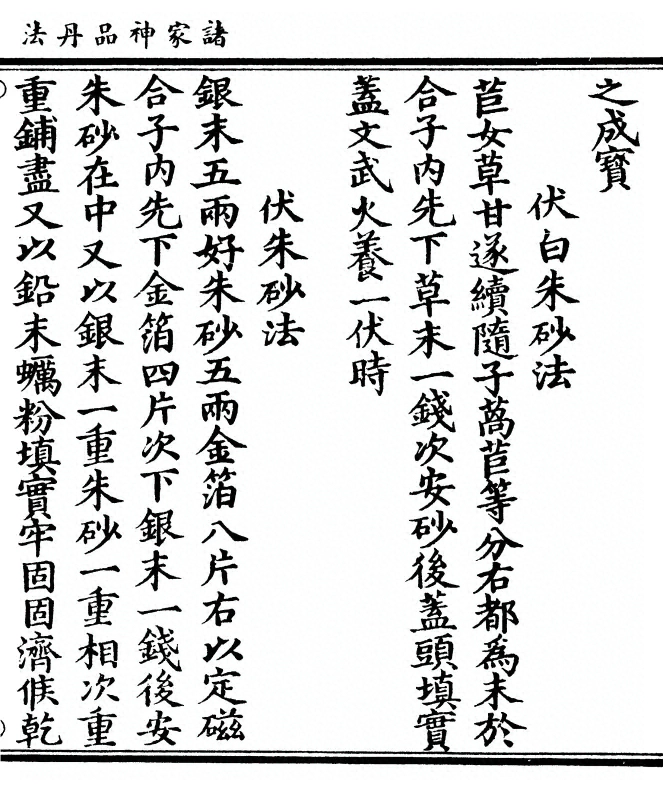 諸家神品丹法
之成寶
伏白朱砂法
苣女草甘遂續隨子萵苣等分右都為末於
合子內先下草末一錢次安砂後蓋頭填實
蓋文武火養一伏時
伏朱砂法
銀末五兩好朱砂五兩金箔八片右以定磁
合子內先下金箔四片次下銀末一錢後安
朱砂在中又以銀末一重朱砂一重相次重
重鋪盡又以鉛末蠣粉填實牢固固濟候乾